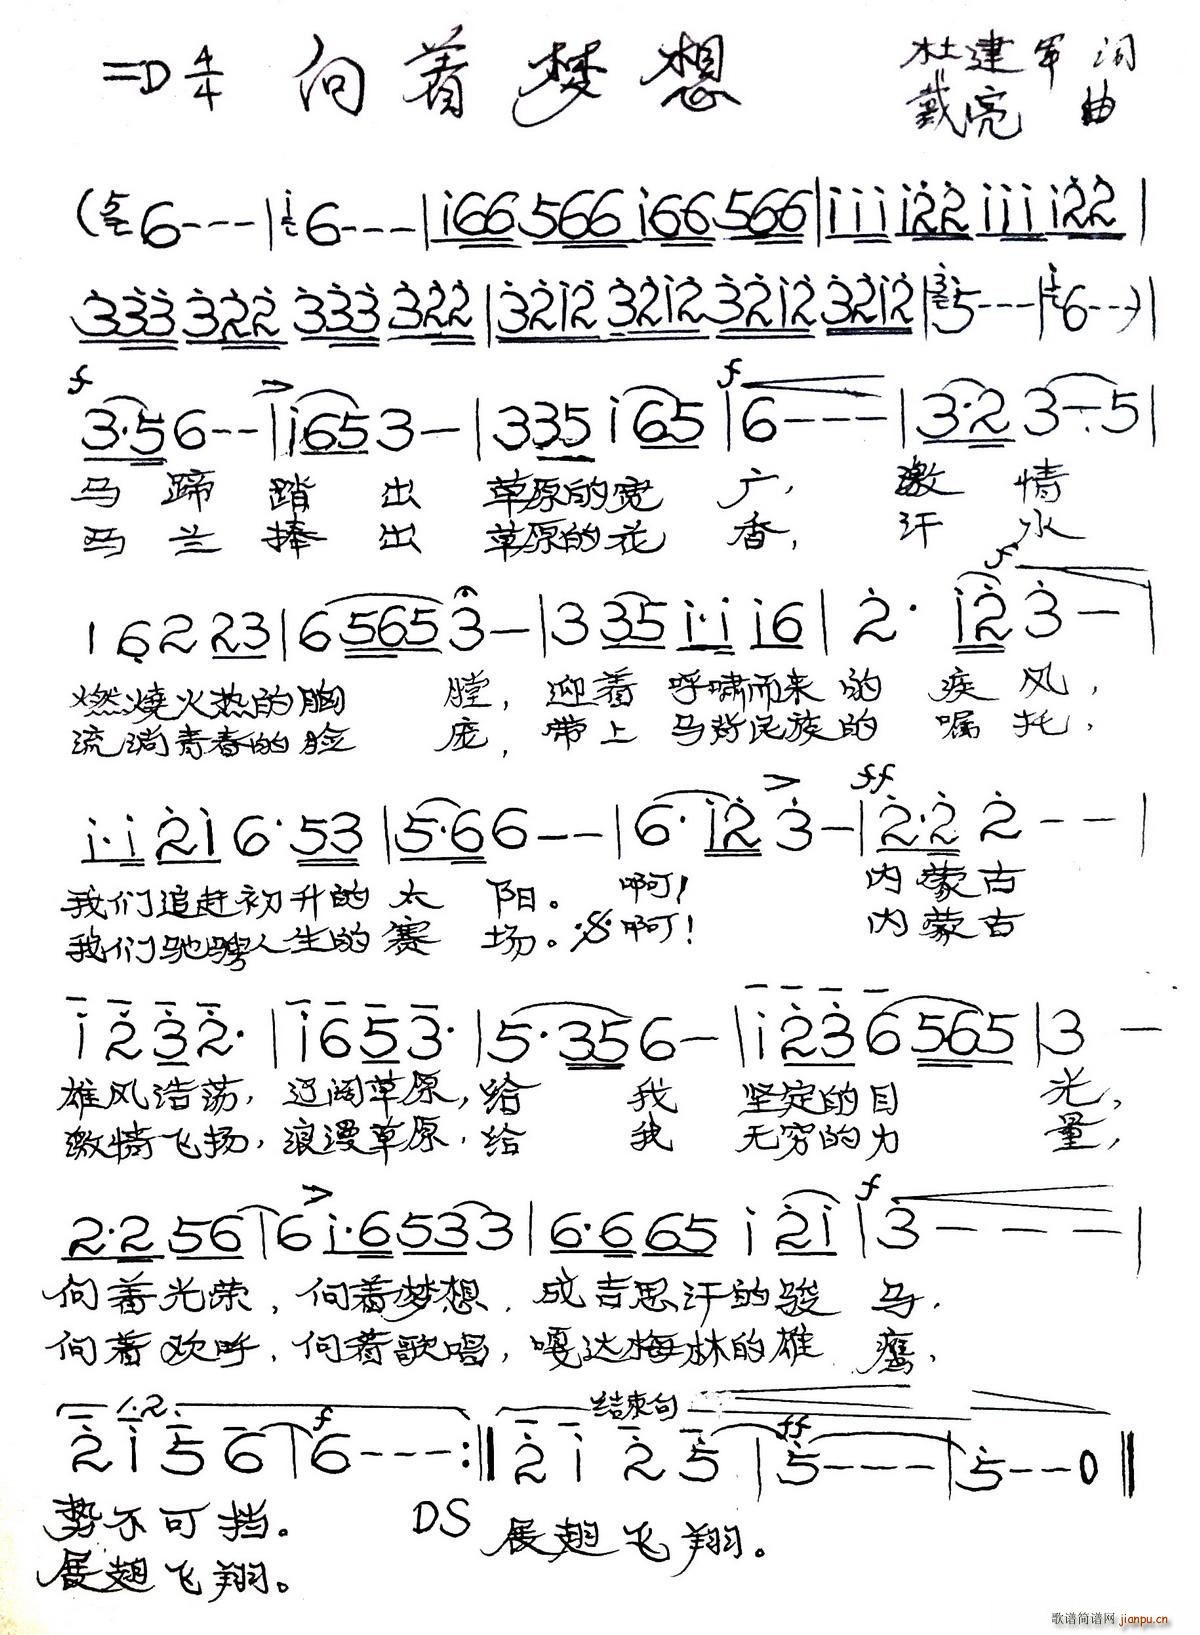 =D 4/4 向着梦想 杜建军 词
戴亮 曲
(6--- | 6--- | i66 566 i66 566 | iii i22 iii i22 |
333 322 333 322 | 3212 3212 3212 3212 | 5--- | 6--) |
f f
3·5 6-- | i65 3- | 335 i65 | 6--- | 3·2 3-·5 |
马蹄踏出草原的宽广, 激情
马兰捧出草原的花香, 汗水
f
1 6 2 23 | 6 565 3- | 3 35 i·i i6 | 2· i2 3- |
燃烧火热的胸膛, 迎着呼啸而来的疾风,
流淌青春的脸庞, 带上马背民族的嘱托,
ff
i·i 2i 6·53 | 5·66-- | 6·i2 3- | 2·2 2-- |
我们追赶初升的太阳。啊! 内蒙古
我们驰骋人生的赛场。啊! 内蒙古
i 2 3 2· | i 6 5 3· | 5·35 6- | i 2 3 6 565 | 3 -
雄风浩荡, 辽阔草原, 给我坚定的目光,
激情飞扬, 浪漫草原, 给我无穷的力量,
f
2·2 56 | 6 i·6 53 3 | 6·6 65 i 2i | 3--- |
向着光荣, 向着梦想, 成吉思汗的骏马,
向着欢呼, 向着歌唱, 嘎达梅林的雄鹰,
1.2 结束句
f ff
2 i 5 6 | 6---:|| 2 i 2 5 | 5---- | 5---0 ||
势不可挡。 DS 展翅飞翔。
展翅飞翔。
歌谱简谱网 jianpu.cn